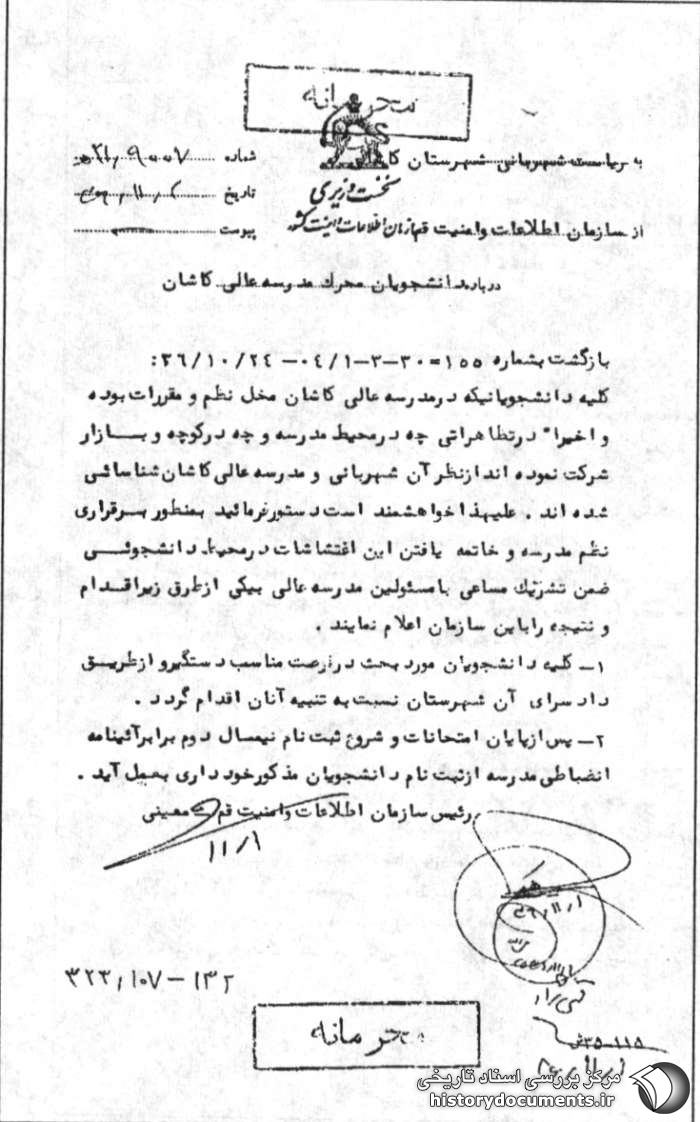 محرمانه
به ریاست شهربانی شهرستان
شماره ۹۰۰۷
نخست وزیری
تاریخ
از سازمان اطلاعات وامنیت قم سازمان اطلاعات و امنیت کشور
پیوست
درباره دانشجویان محرك مدرسه عالی کاشان
بازگشت بشماره ۱۵۵=۳۰-۳-۰۴/۱ـ ۳۶/۱۰/۲٤:
کلیه دانشجویانیکه درمدرسه عالی کاشان مخل نظم و مقررات بوده
و اخیرا" درتظاهراتی چه درمحیط مدرسه و چه درکوچه و بازار
شرکت نموده اند ازنظر آن شهربانی و مدرسه عالی کاشان شناسائی
شده اند . علیهذا خواهشمند است دستورفرمائید بمنظور برقراری
نظم مدرسه و خاتمه یافتن این اغتشاشات درمحیط دانشجوئی
ضمن تشریك مساعی بامسئولین مدرسه عالی بیکی ازطرق زیراقدام
و نتیجه راباین سازمان اعلام نمایند .
۱ـ کلیه دانشجویان مورد بحث درفرصت مناسب دستگیرو ازطریق
دادسرای آن شهرستان نسبت به تنبیه آنان اقدام گردد .
۲ـ پس ازپایان امتحانات و شروع ثبت نام نیمسال دوم برابرآئینامه
انضباطی مدرسه ازثبت نام دانشجویان مذکورخودداری بعمل آید .
رئیس سازمان اطلاعات وامنیت قم معینی
۱۱/۱
۳۲۳/۱۰۷-۱۳۲
محرمانه
۳۵-۱۱۵
مرکز بررسی اسناد تاریخی
historydocuments.ir